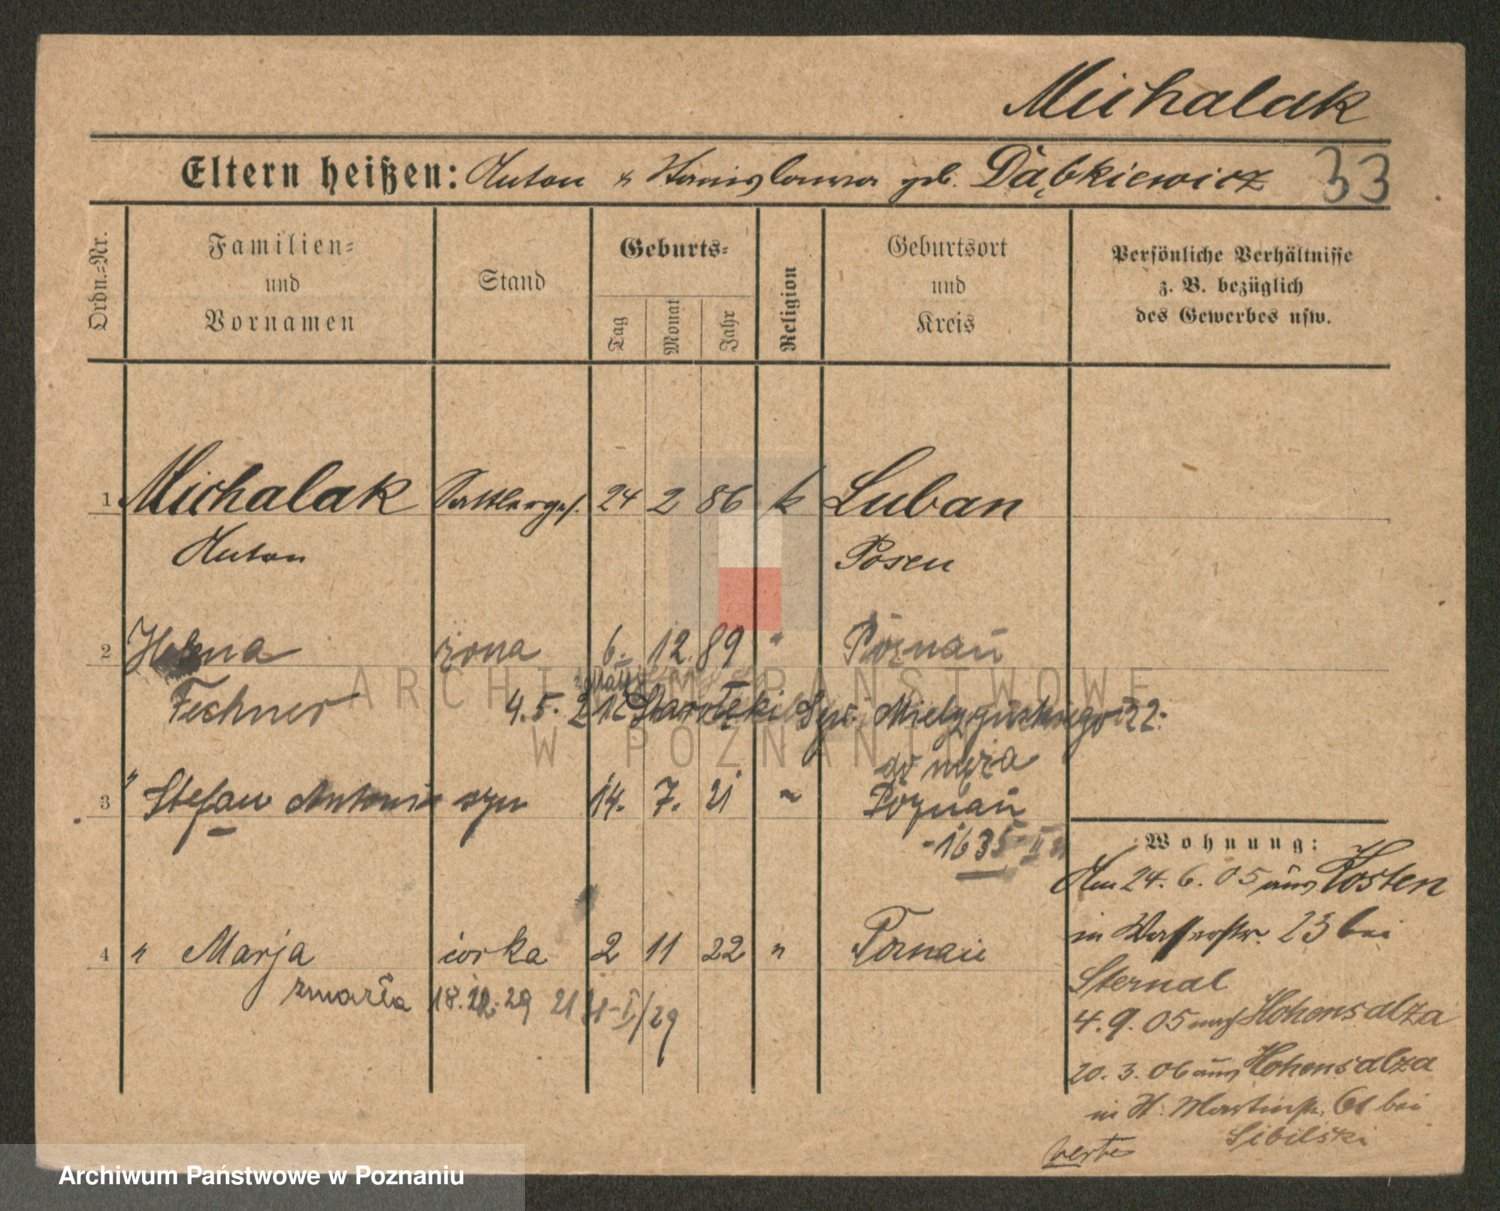 Michalak
Eltern heißen: Anton u Stanislawa geb. Dąbkiewicz 33
Ordn.=Nr.
Familien=
und
Vornamen
Stand
Geburts=
Tag
Monat
Jahr
Religion
Geburtsort
und
Kreis
Persönliche Verhältnisse
z. B. bezüglich
des Gewerbes usw.
1 Michalak Sattlerges. 24 2 86 k Luban
Anton Posen
2 Helena żona 6. 12. 89 " Poznań
Fechner 4.5. Starołęki 22.
do męża
3 " Stefan Antoni syn 14. 7. 21 " Poznań
4 " Marja córka 2 11 22 " Poznań
zmarła 18. 29
Wohnung:
Am 24. 6. 05 aus Kosten
in Wasserstr. 23 bei
Sternal
4. 9. 05 nach Hohensalza
20. 3. 06 aus Hohensalza
in St. Martinstr. 61 bei
Sibilski
verte
ARCHIWUM PAŃSTWOWE
W POZNANIU
Archiwum Państwowe w Poznaniu